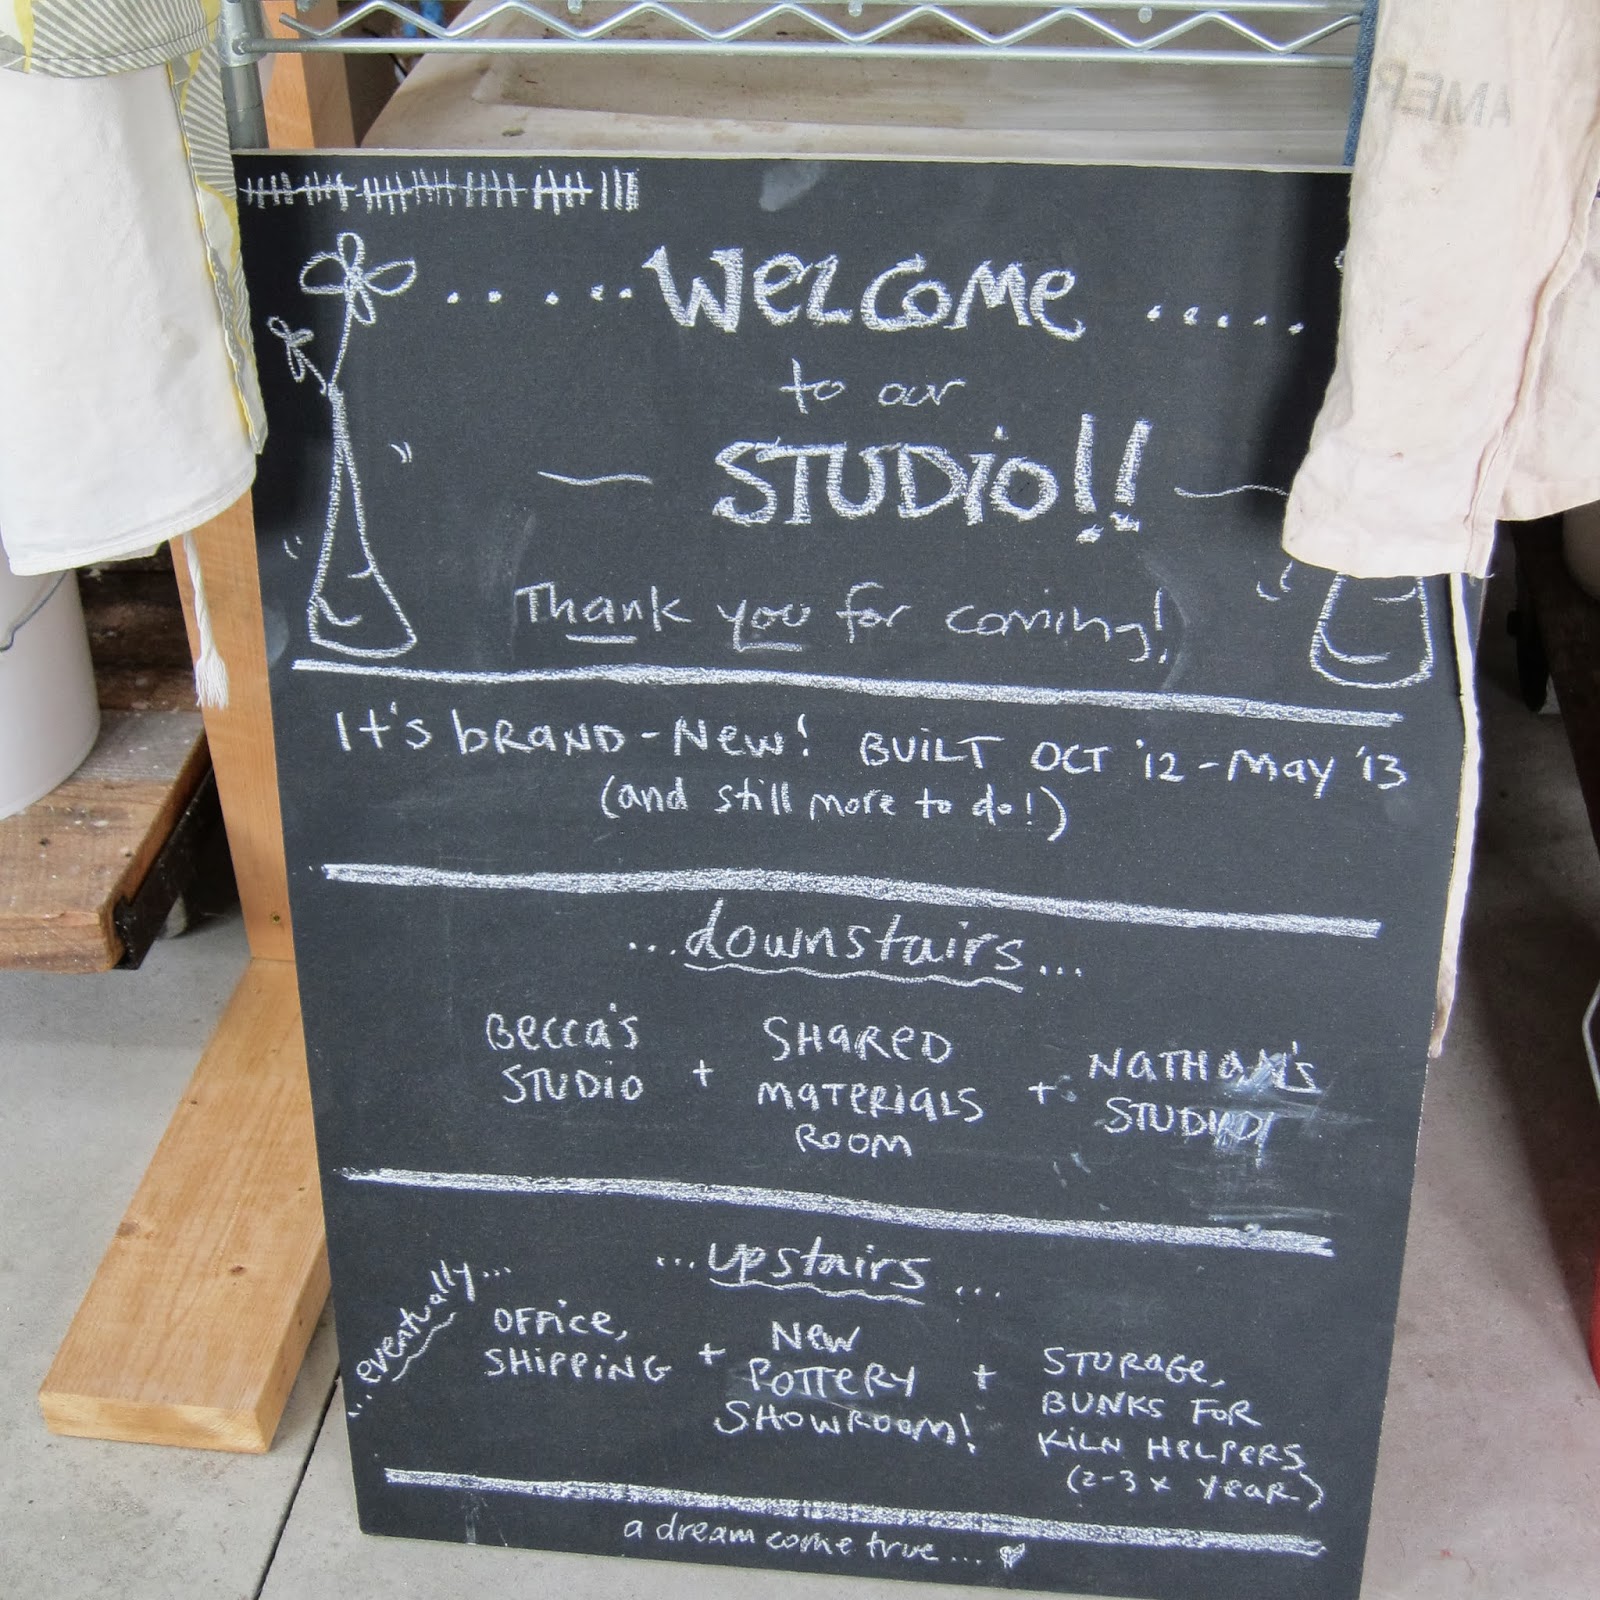 ..... WELCOME .....
to our
— STUDIO!! —
Thank you for coming!
It's brand-New! BUILT OCT '12 - May '13
(and still more to do!)
...downstairs...
Becca's
STUDIO
+
SHARED
MATERIALS
ROOM
+
NATHAN's
STUDIO
...upstairs...
...eventually...
OFFICE,
SHIPPING
+
NEW
POTTERY
SHOWROOM!
+
STORAGE,
BUNKS FOR
KILN HELPERS
(2-3 x year)
a dream come true... ♥